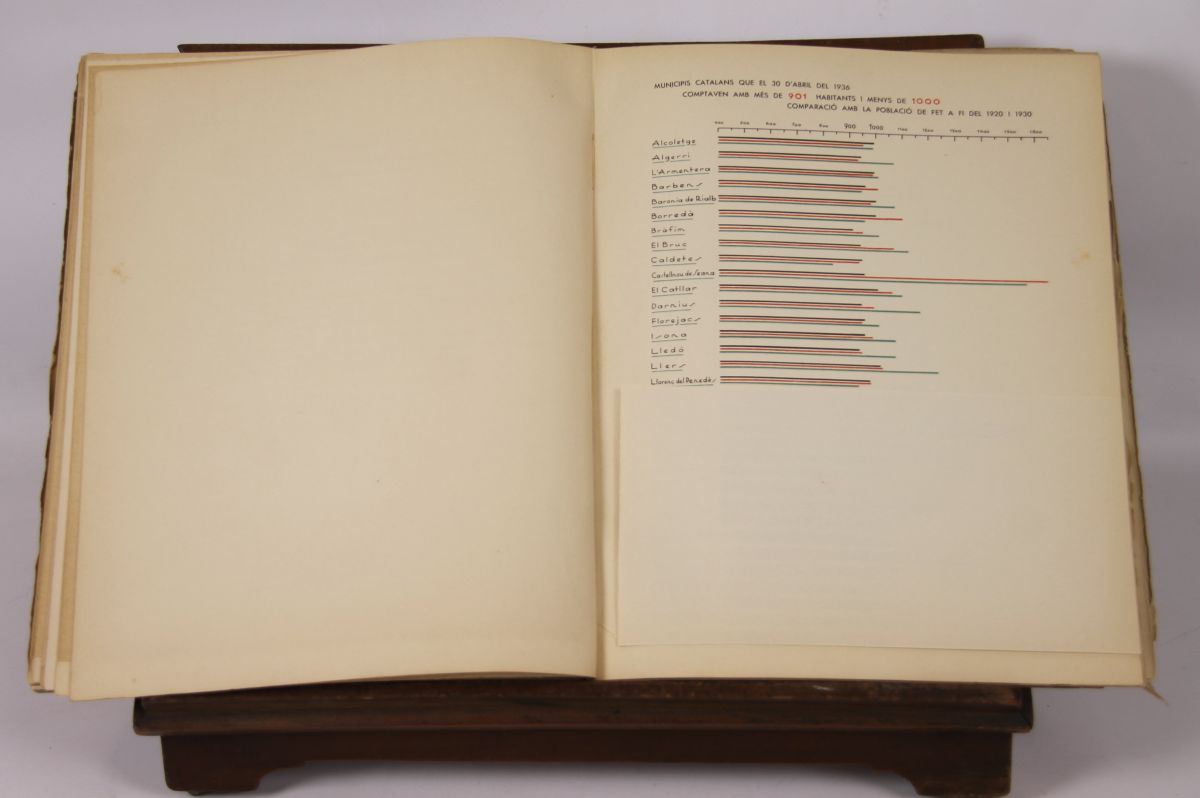 MUNICIPIS CATALANS QUE EL 30 D'ABRIL DEL 1936
COMPTAVEN AMB MÉS DE 901 HABITANTS I MENYS DE 1000
COMPARACIÓ AMB LA POBLACIÓ DE FET A FI DEL 1920 I 1930
900 1000
Alcoletge
Algerri
L'Armentera
Barbens
Baronia de Rialb
Borredà
Bràfim
El Bruc
Caldetes
Castellnou de Seana
El Catllar
Darnius
Florejacs
Isona
Lledó
Llers
Llorenç del Penedès